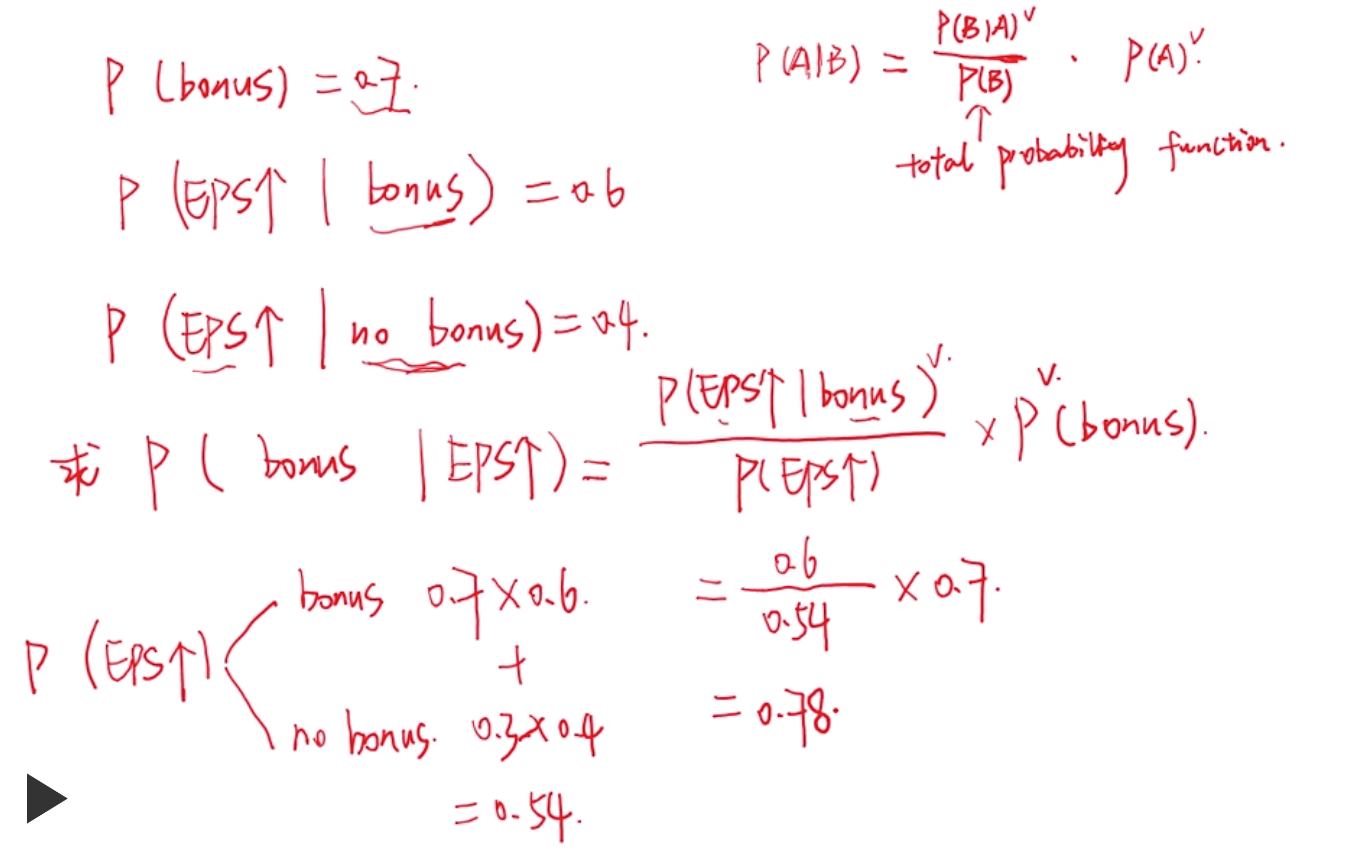 P (bonus) = 0.7.
P(A|B) = P(B|A)ᵛ / P(B) · P(A)ᵛ.
↑
total probability function.
P (EPS↑ | bonus) = 0.6
P (EPS↑ | no bonus) = 0.4.
求 P ( bonus | EPS↑) = P(EPS↑ | bonus)ᵛ· / P(EPS↑) × P (bonus)ᵛ·.
P (EPS↑)
bonus 0.7 × 0.6.
+
no bonus. 0.3 × 0.4
= 0.54.
= 0.6 / 0.54 × 0.7.
= 0.78.